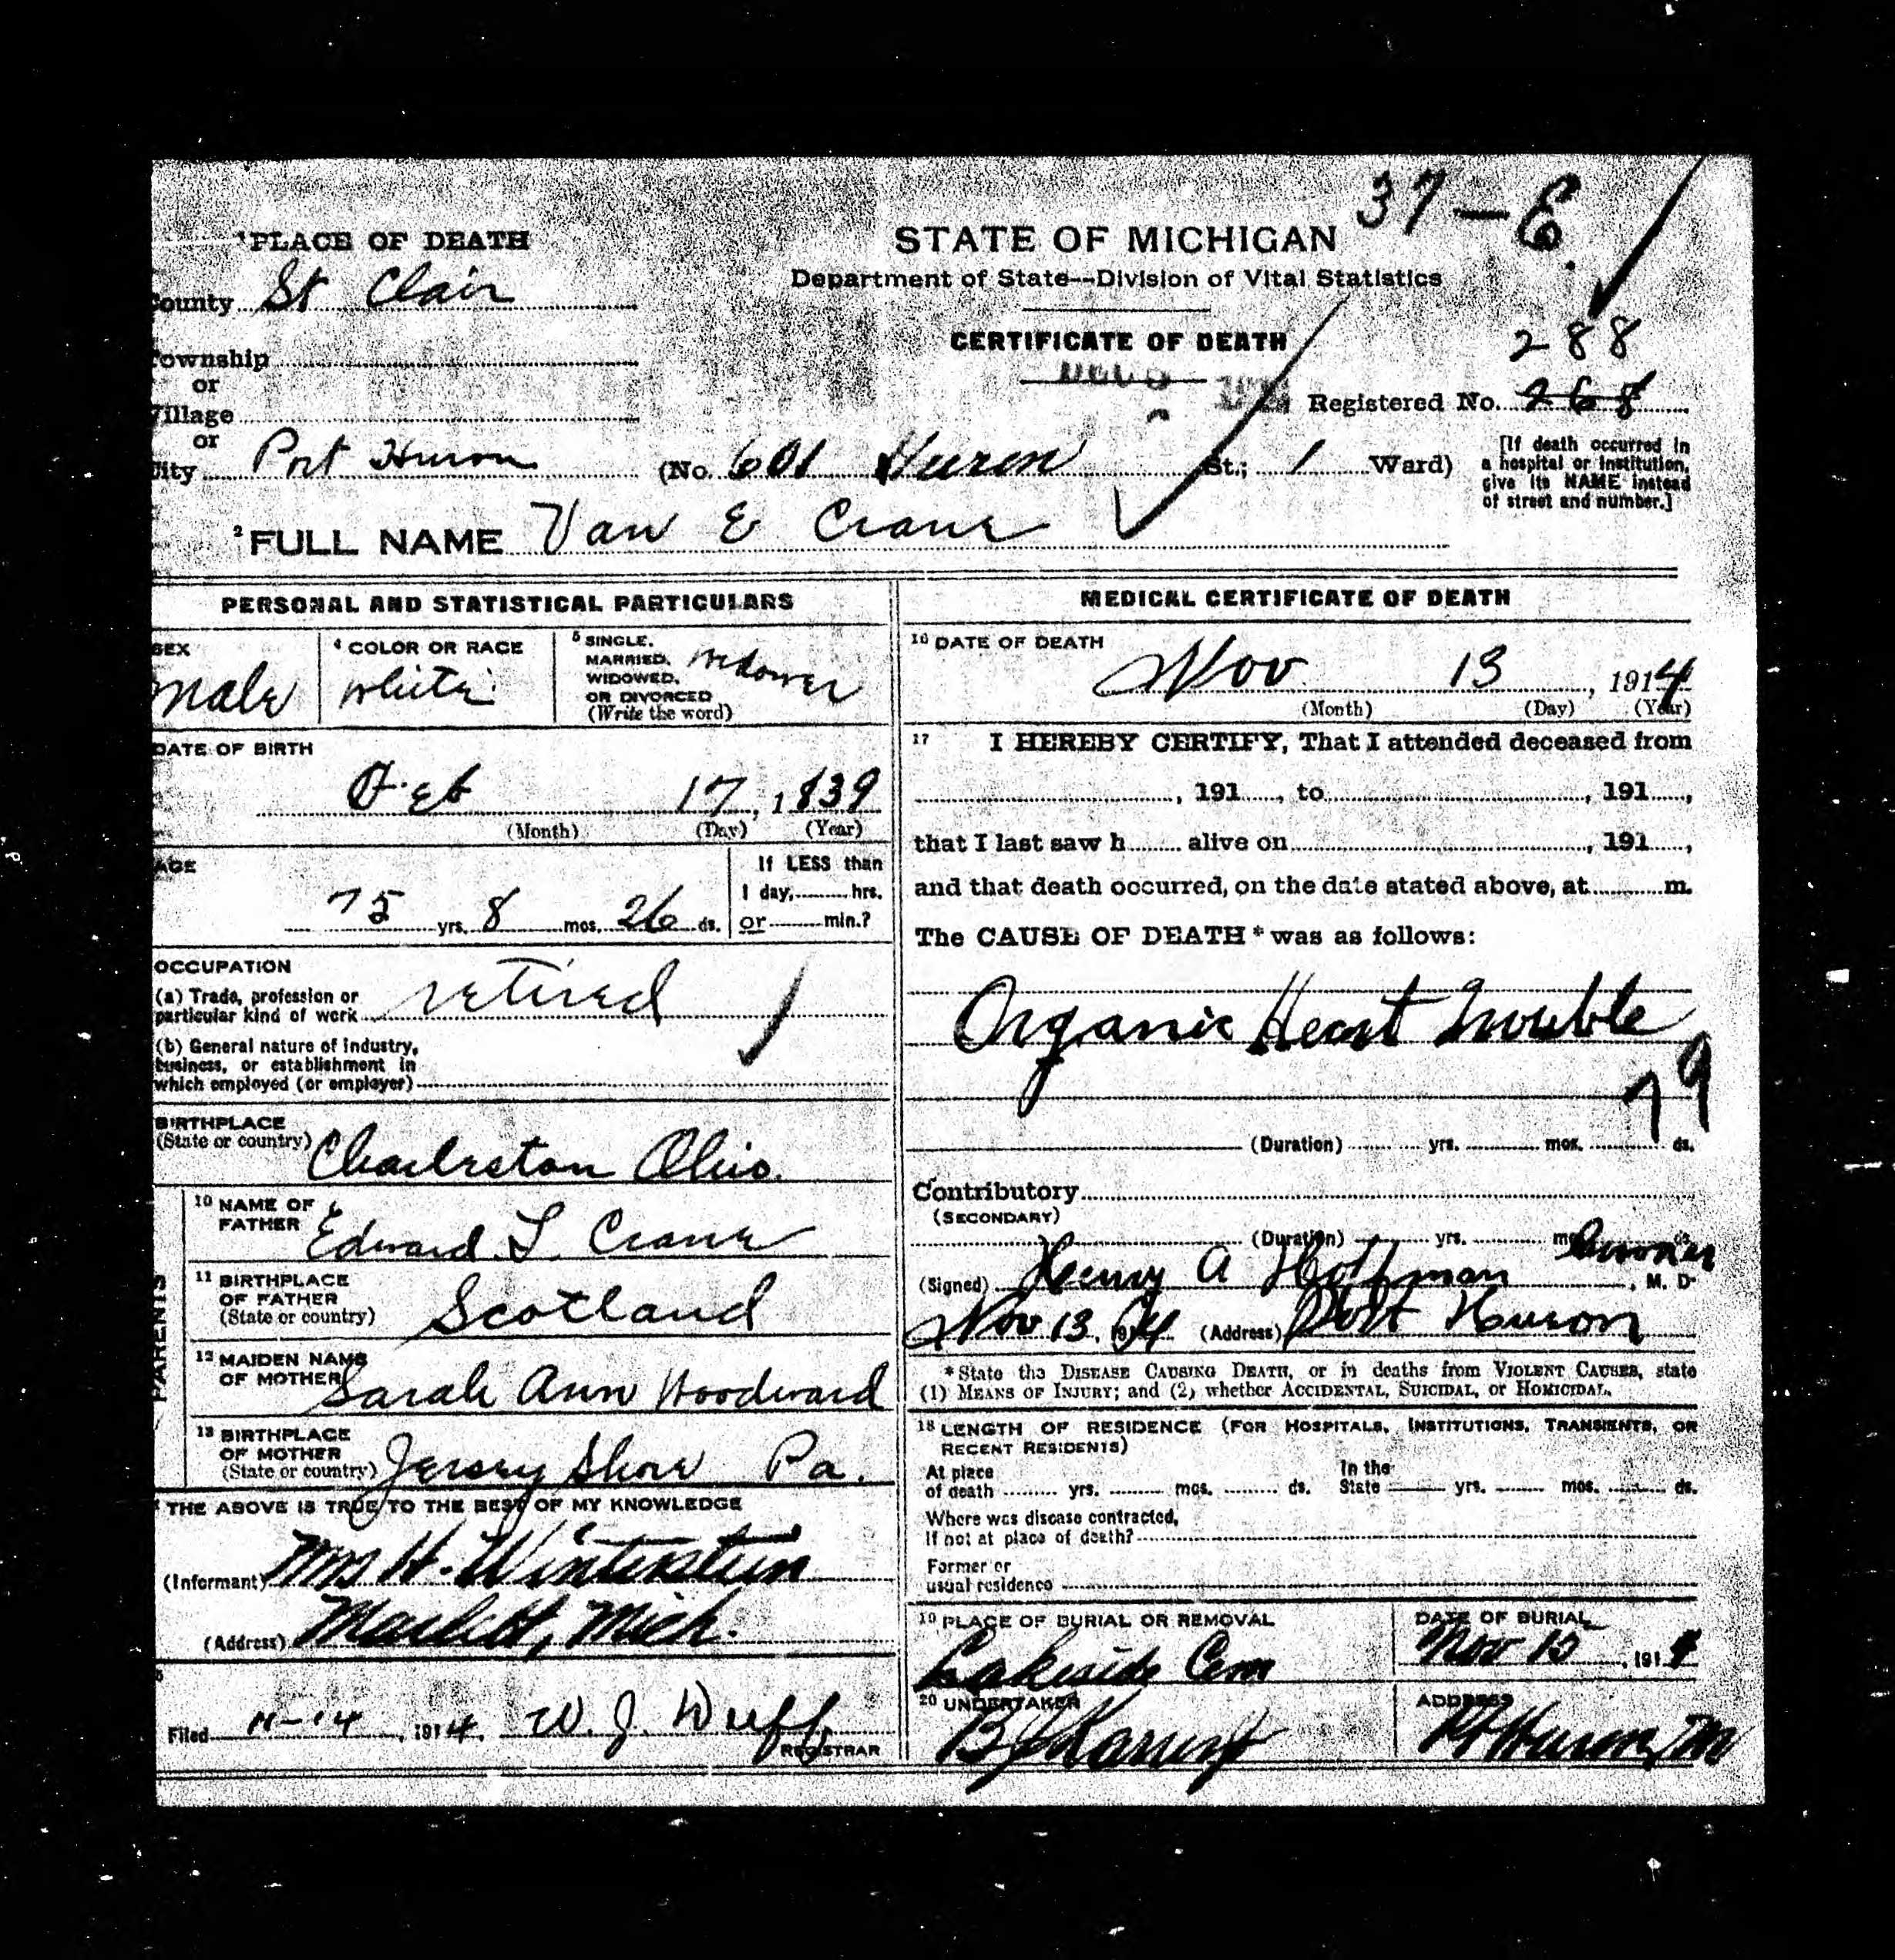 37 — E.
¹PLACE OF DEATH
STATE OF MICHIGAN
Department of State--Division of Vital Statistics
County St Clair
CERTIFICATE OF DEATH
288
Township
or
Village
Registered No. 268
or
City Port Huron (No. 601 Huron St.; 1 Ward)
[If death occurred in
a hospital or institution,
give its NAME instead
of street and number.]
²FULL NAME Van E Crane
PERSONAL AND STATISTICAL PARTICULARS
SEX
male
⁴ COLOR OR RACE
white
⁵ SINGLE,
MARRIED,
WIDOWED,
OR DIVORCED
(Write the word)
widower
DATE OF BIRTH
Feb 17, 1839
(Month) (Day) (Year)
AGE
75 yrs. 8 mos. 26 ds.
If LESS than
1 day, hrs.
or min.?
OCCUPATION
(a) Trade, profession or
particular kind of work retired
(b) General nature of industry,
business, or establishment in
which employed (or employer)
BIRTHPLACE
(State or country) Charleston Ohio.
PARENTS
¹⁰ NAME OF
FATHER Edward L. Crane
¹¹ BIRTHPLACE
OF FATHER
(State or country) Scotland
¹² MAIDEN NAME
OF MOTHER Sarah Ann Woodward
¹³ BIRTHPLACE
OF MOTHER
(State or country) Jersey Shore Pa.
THE ABOVE IS TRUE TO THE BEST OF MY KNOWLEDGE
(Informant) Mrs H. Winterstein
(Address) Marlett, Mich.
Filed 11-14, 1914. W. J. Duff
REGISTRAR
MEDICAL CERTIFICATE OF DEATH
¹⁶ DATE OF DEATH
Nov 13, 1914
(Month) (Day) (Year)
¹⁷ I HEREBY CERTIFY, That I attended deceased from
, 191 , to , 191 ,
that I last saw h alive on , 191 ,
and that death occurred, on the date stated above, at m.
The CAUSE OF DEATH* was as follows:
Organic Heart Trouble
79
(Duration) yrs. mos. ds.
Contributory
(SECONDARY)
(Duration) yrs. mos. ds.
Coroner
(Signed) Henry A Hoffman, M. D.
Nov 13, 1914 (Address) Port Huron
*State the DISEASE CAUSING DEATH, or in deaths from VIOLENT CAUSES, state
(1) MEANS OF INJURY; and (2) whether ACCIDENTAL, SUICIDAL, or HOMICIDAL.
¹⁸ LENGTH OF RESIDENCE (FOR HOSPITALS, INSTITUTIONS, TRANSIENTS, OR
RECENT RESIDENTS)
At place
of death yrs. mos. ds.
In the
State yrs. mos. ds.
Where was disease contracted,
If not at place of death?
Former or
usual residence
¹⁹ PLACE OF BURIAL OR REMOVAL
Lakeside Cem
DATE OF BURIAL
Nov 15, 1914
²⁰ UNDERTAKER
ADDRESS
Pt Huron, M